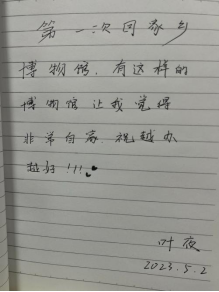 第一次回家乡
博物馆,有这样的
博物馆让我觉得
非常自豪,祝越办
越好!!!
叶夜
2023.5.2